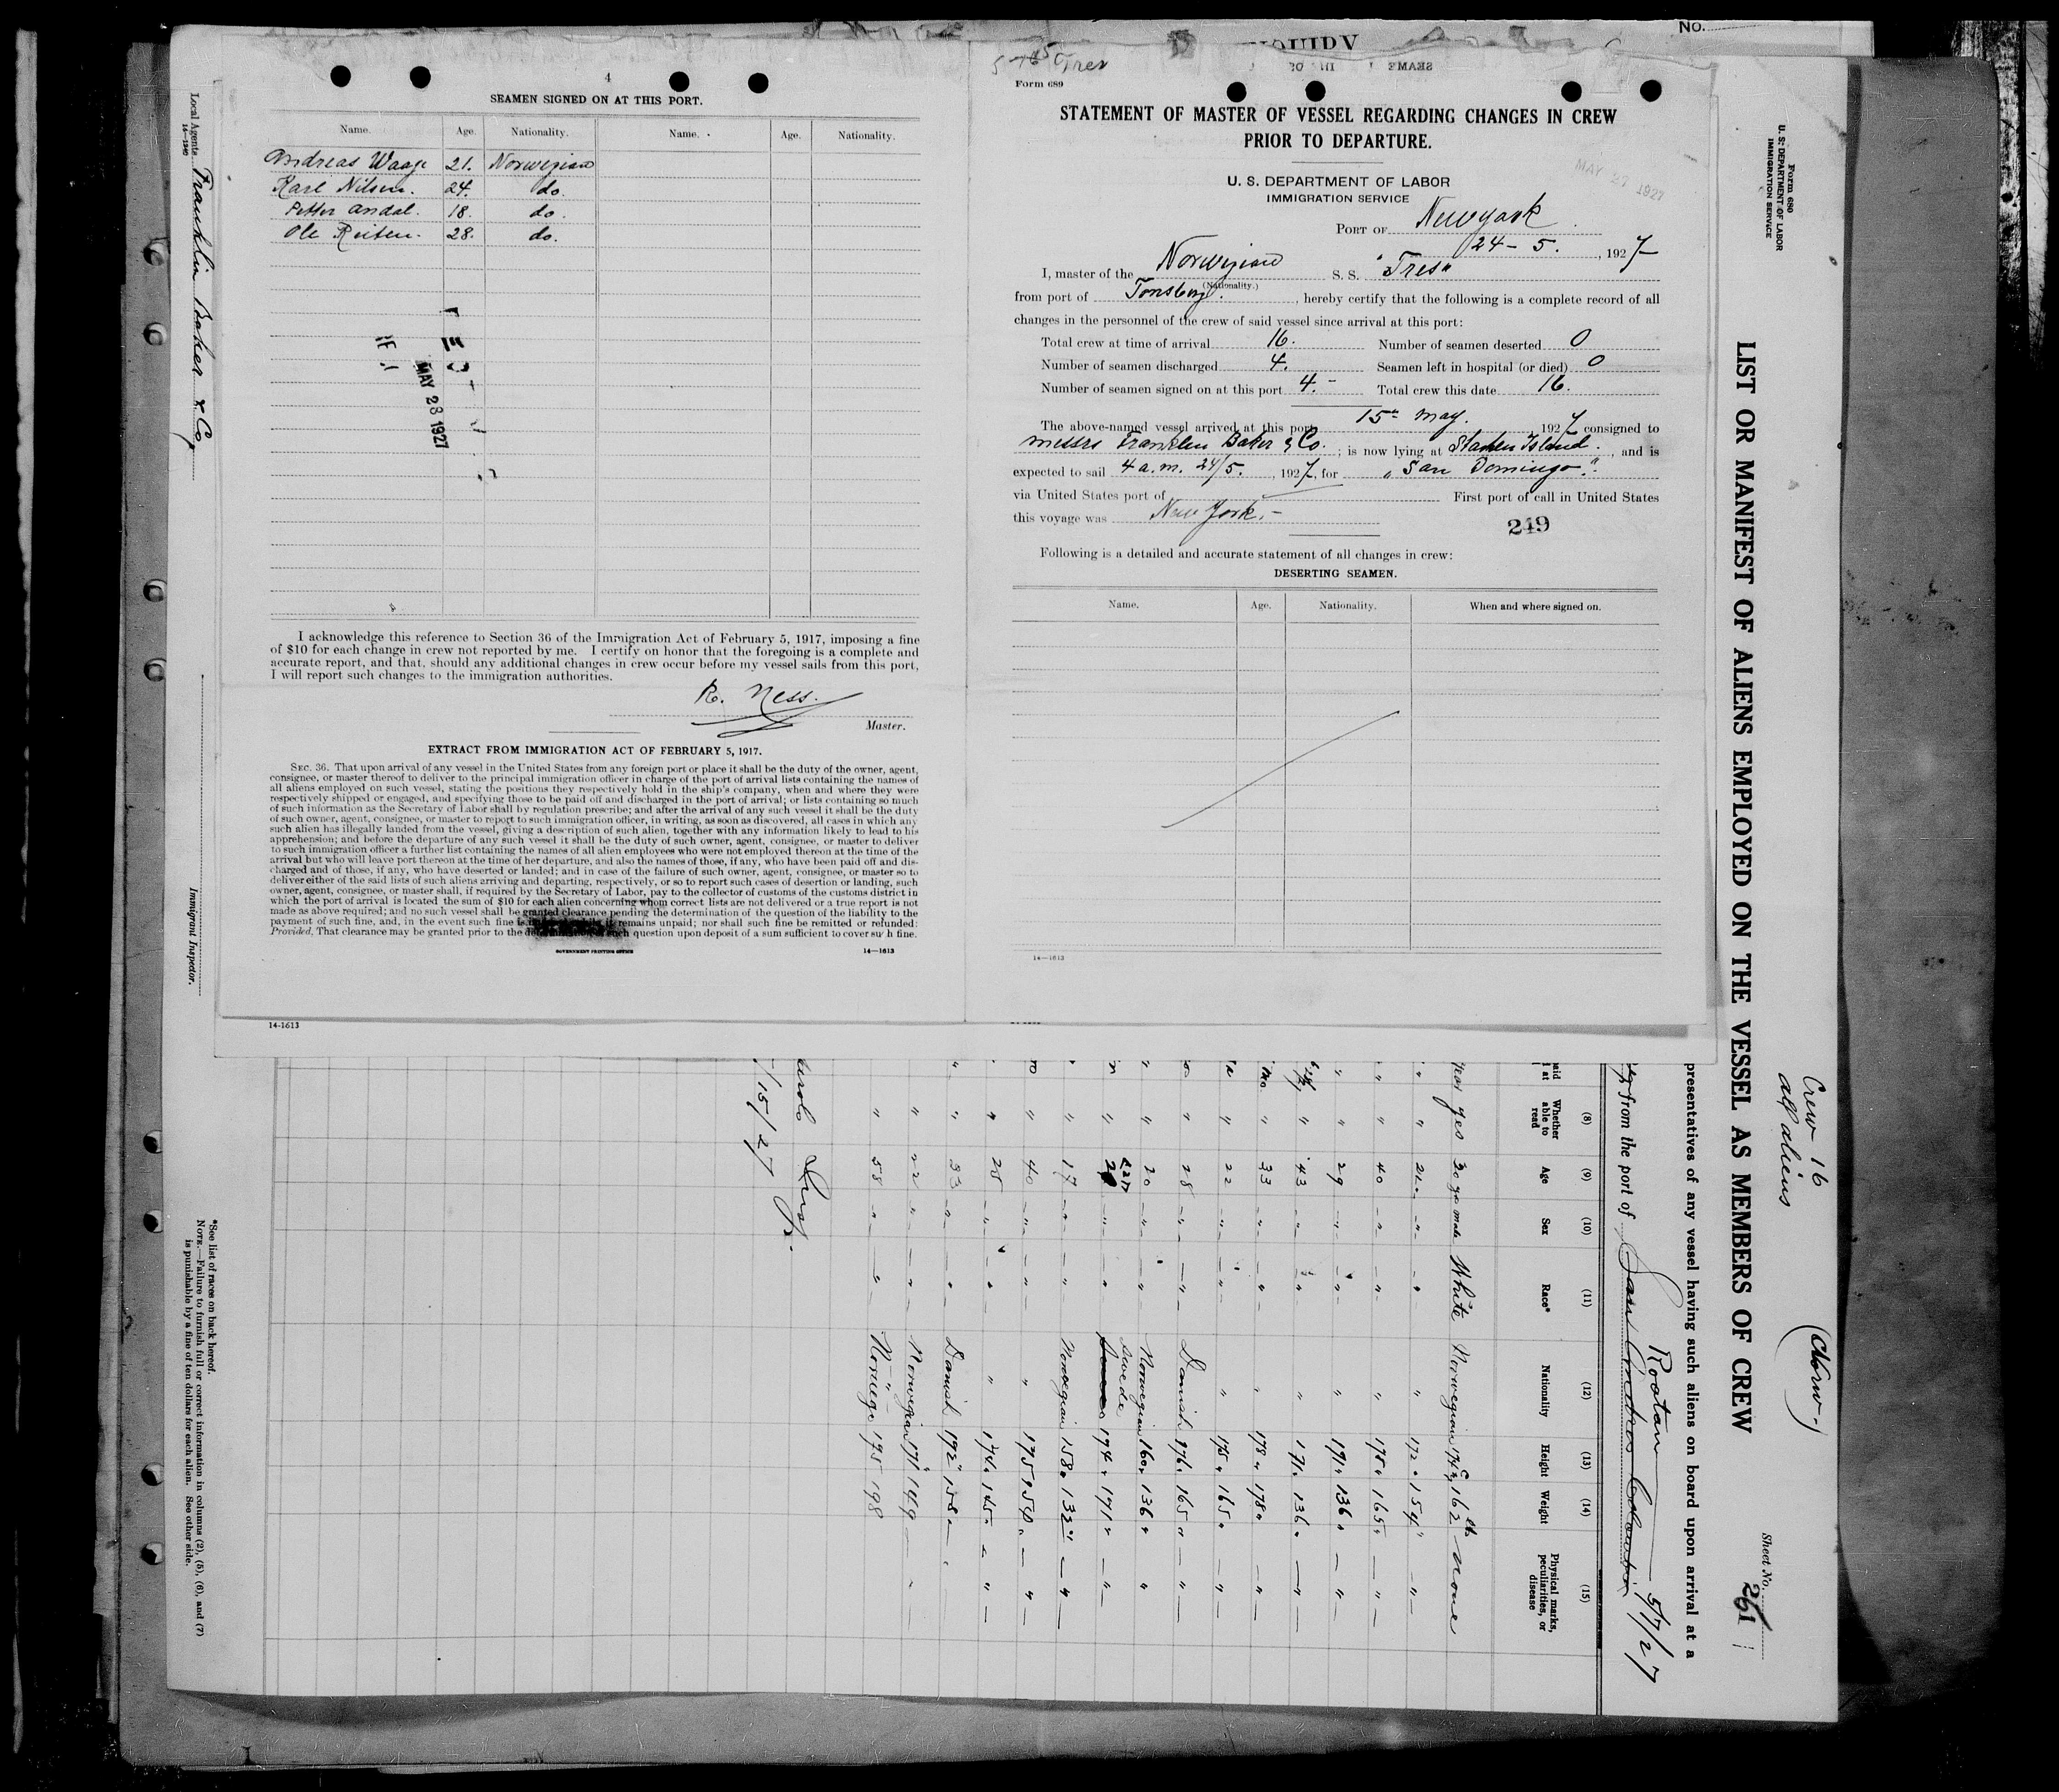 No.
QUIRY
Tres
4
SEAMEN SIGNED ON AT THIS PORT.
Name. Age. Nationality. Name. Age. Nationality.
Andreas Waage 21. Norwegian
Karl Nilsen. 24. do.
Petter Andal. 18. do.
Ole Reiten. 28. do.
MAY 23 1927
I acknowledge this reference to Section 36 of the Immigration Act of February 5, 1917, imposing a fine
of $10 for each change in crew not reported by me. I certify on honor that the foregoing is a complete and
accurate report, and that, should any additional changes in crew occur before my vessel sails from this port,
I will report such changes to the immigration authorities.
R. Ness.
Master.
EXTRACT FROM IMMIGRATION ACT OF FEBRUARY 5, 1917.
SEC. 36. That upon arrival of any vessel in the United States from any foreign port or place it shall be the duty of the owner, agent,
consignee, or master thereof to deliver to the principal immigration officer in charge of the port of arrival lists containing the names of
all aliens employed on such vessel, stating the positions they respectively hold in the ship's company, when and where they were
respectively shipped or engaged, and specifying those to be paid off and discharged in the port of arrival; or lists containing so much
of such information as the Secretary of Labor shall by regulation prescribe; and after the arrival of any such vessel it shall be the duty
of such owner, agent, consignee, or master to report to such immigration officer, in writing, as soon as discovered, all cases in which any
such alien has illegally landed from the vessel, giving a description of such alien, together with any information likely to lead to his
apprehension; and before the departure of any such vessel it shall be the duty of such owner, agent, consignee, or master to deliver
to such immigration officer a further list containing the names of all alien employees who were not employed thereon at the time of the
arrival but who will leave port thereon at the time of her departure, and also the names of those, if any, who have been paid off and dis-
charged and of those, if any, who have deserted or landed; and in case of the failure of such owner, agent, consignee, or master so to
deliver either of the said lists of such aliens arriving and departing, respectively, or so to report such cases of desertion or landing, such
owner, agent, consignee, or master shall, if required by the Secretary of Labor, pay to the collector of customs of the customs district in
which the port of arrival is located the sum of $10 for each alien concerning whom correct lists are not delivered or a true report is not
made as above required; and no such vessel shall be granted clearance pending the determination of the question of the liability to the
payment of such fine, and, in the event such fine is remains unpaid; nor shall such fine be remitted or refunded:
Provided, That clearance may be granted prior to the such question upon deposit of a sum sufficient to cover such fine.
GOVERNMENT PRINTING OFFICE 14—1613
14-1613
Form 689
STATEMENT OF MASTER OF VESSEL REGARDING CHANGES IN CREW
PRIOR TO DEPARTURE.
U. S. DEPARTMENT OF LABOR
IMMIGRATION SERVICE
MAY 27 1927
PORT OF New york
24 - 5. , 1927
I, master of the Norwegian S. S. "Tres"
(Nationality.)
from port of Tonsberg. , hereby certify that the following is a complete record of all
changes in the personnel of the crew of said vessel since arrival at this port:
Total crew at time of arrival 16. Number of seamen deserted 0
Number of seamen discharged 4. Seamen left in hospital (or died) 0
Number of seamen signed on at this port 4. - Total crew this date 16.
The above-named vessel arrived at this port 15th May. 1927 consigned to
messrs Franklin Baker & Co. ; is now lying at Staten Island. , and is
expected to sail 4 a.m. 24/5. , 1927, for "San Domingo."
via United States port of First port of call in United States
this voyage was New York. -
249
Following is a detailed and accurate statement of all changes in crew:
DESERTING SEAMEN.
Name. Age. Nationality. When and where signed on.
14—1613
Local Agents Franklin Baker & Co
14—1240
Immigrant Inspector.
Form 680
U. S. DEPARTMENT OF LABOR
IMMIGRATION SERVICE
LIST OR MANIFEST OF ALIENS EMPLOYED ON THE VESSEL AS MEMBERS OF CREW
Crew 16
all aliens
(Norw.)
Sheet No. 261
presentatives of any vessel having such aliens on board upon arrival at a
Roatan 5/7/27
from the port of San Andres Colombia
(8) (9) (10) (11) (12) (13) (14) (15)
Whether able to read Age Sex Race* Nationality Height Weight Physical marks, peculiarities, or disease
yes 30 male White Norwegian 174 162 none
" 21 " " " 172 154 "
" 40 " " " 178 165 "
" 29 " " " 171 136 "
" 43 " " " 171 136 "
" 33 " " " 178 178 "
" 22 " " " 175 165 "
" 28 " " Danish 176 165 "
" 20 " " Norwegian 160 136 "
" " " Swede 174 171 "
" 17 " " Norwegian 158 132 "
" 40 " " " 175 154 "
" 28 " " " 174 145 "
" 33 " " Danish 172 158
" 22 " " Norwegian 171 149
" 58 " " Norwege 175 198
Insp.
/15/27
*See list of races on back hereof.
NOTE.—Failure to furnish full or correct information in columns (2), (5), (6), and (7)
is punishable by a fine of ten dollars for each alien. See other side.